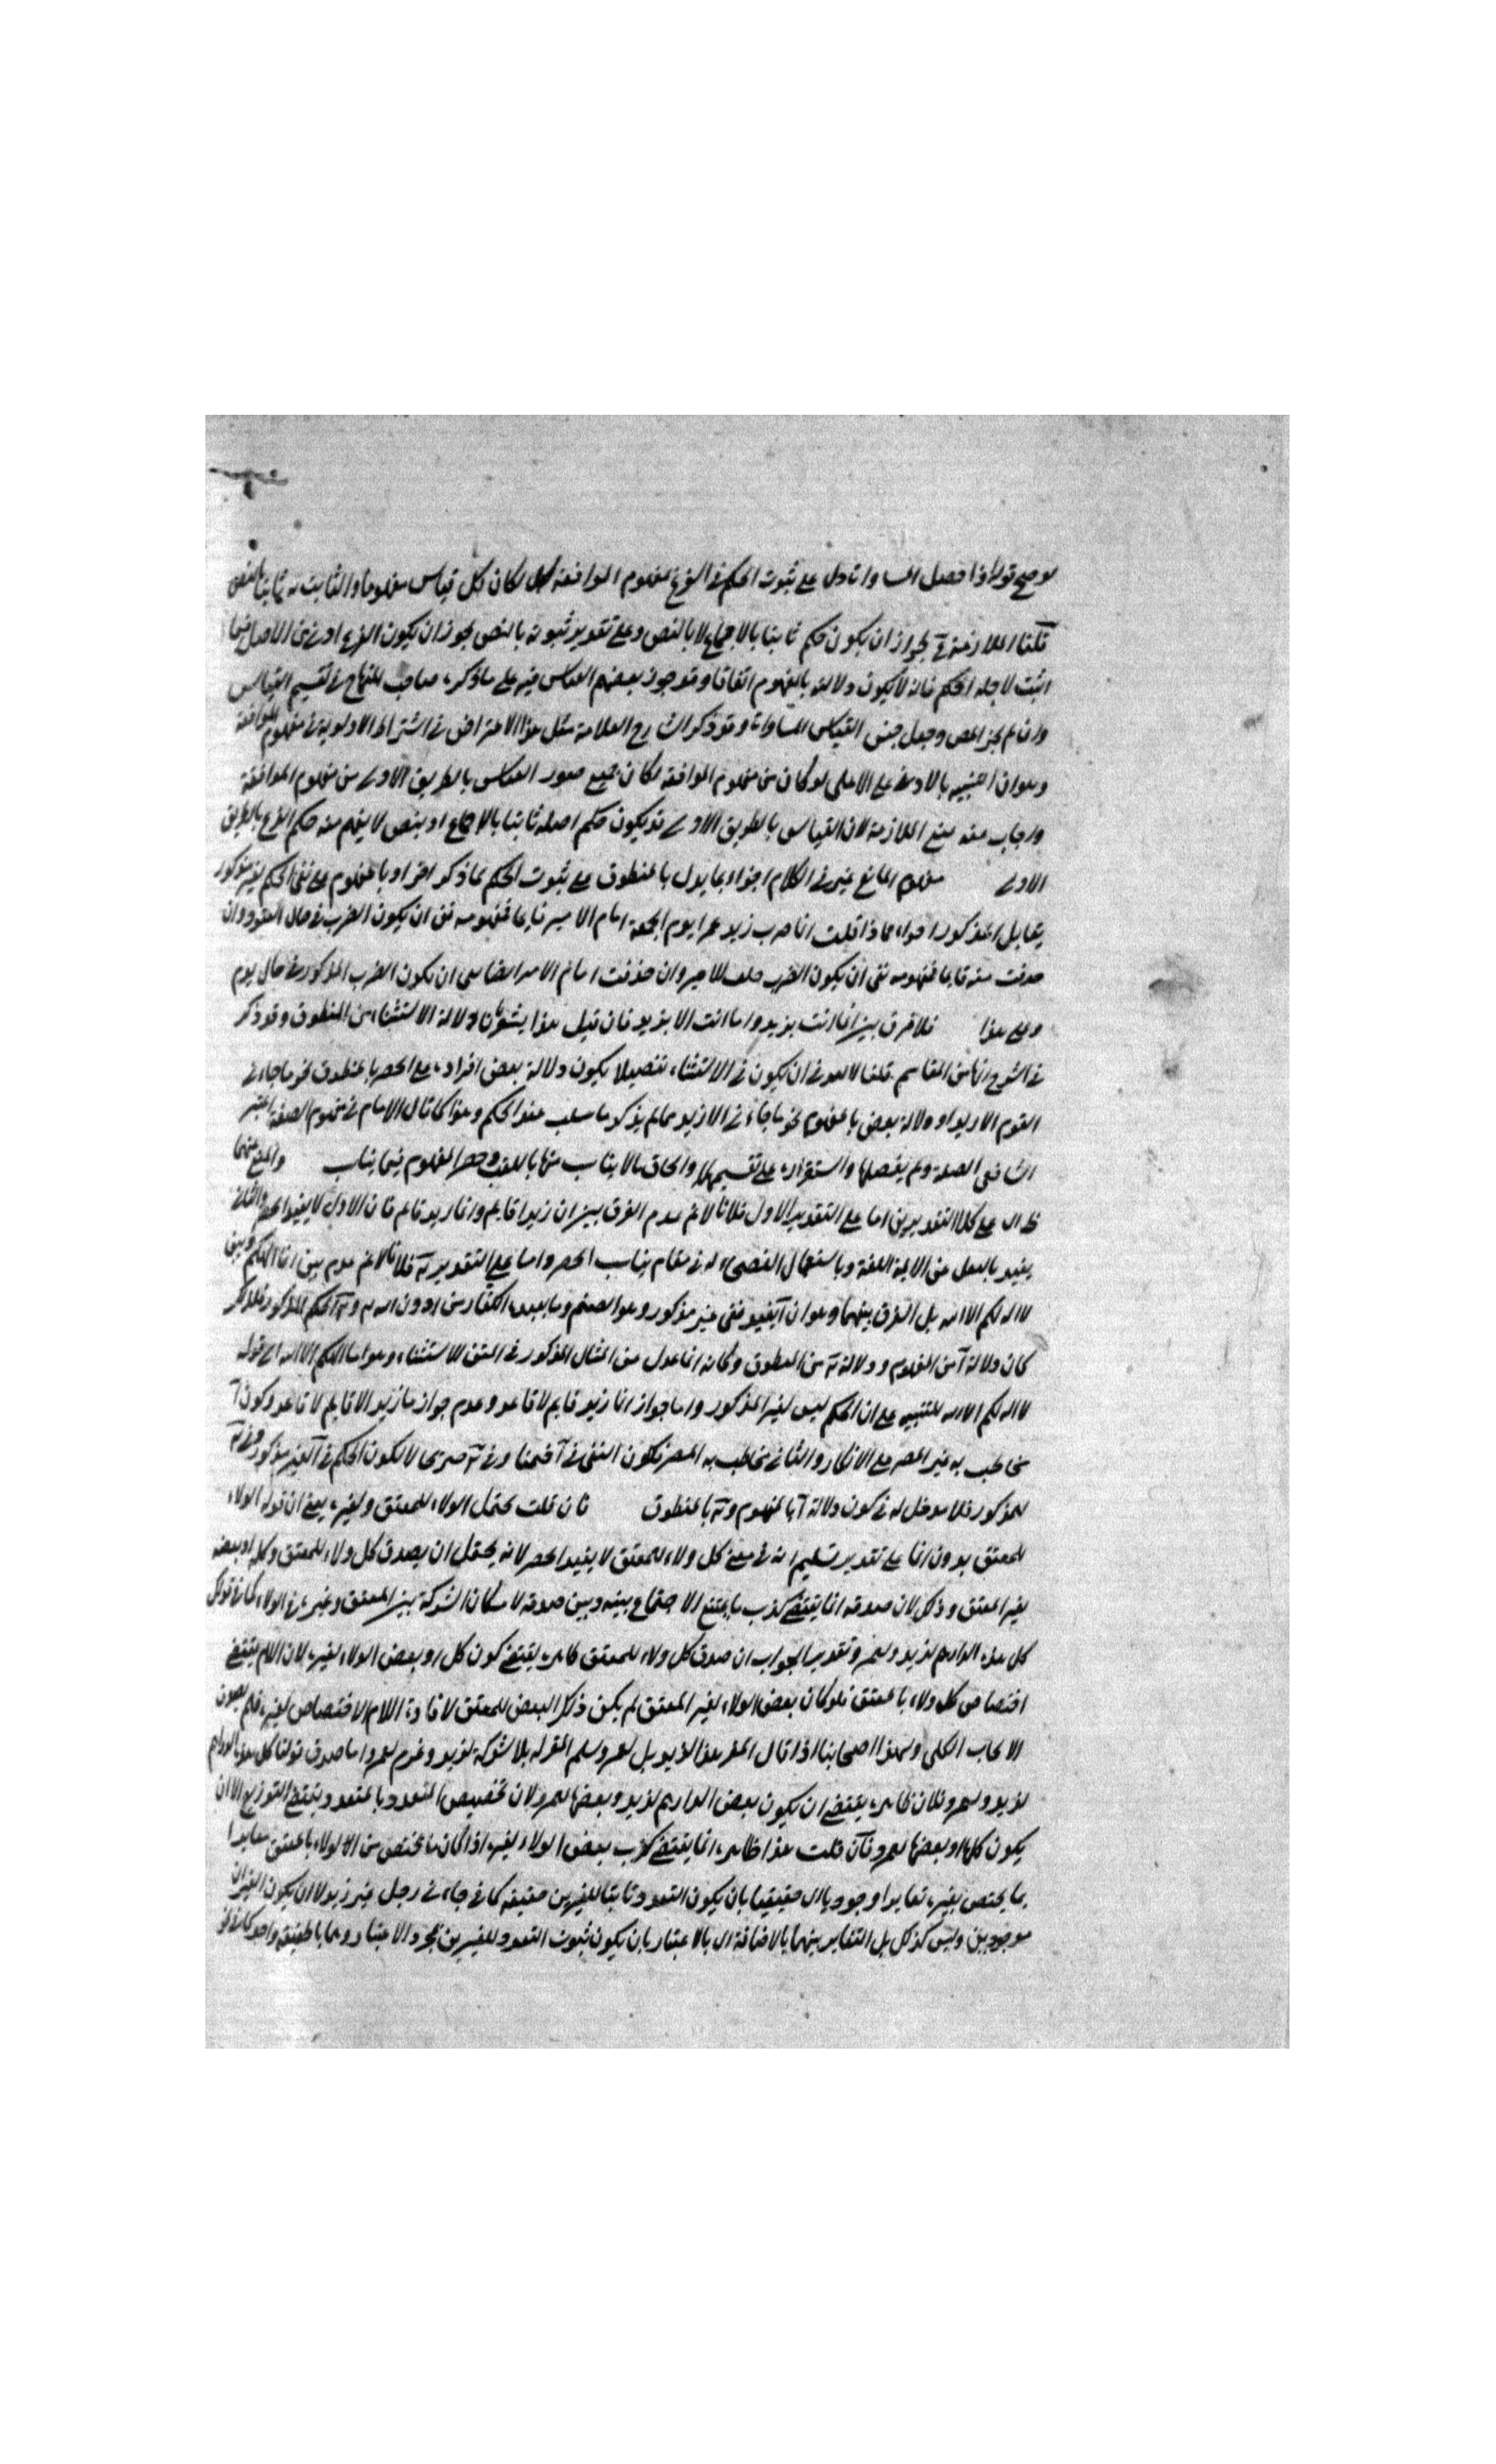 لو صح قوله اذا حصل المساواة دل على ثبوت الحكم في الفرع لمفهوم الموافقة لكان كل قياس مفهوما والثابت به ثابتا بالنص
قلنا الملازمة لجواز ان يكون حكم ثابتا بالاجماع لا بالنص وعلى تقدير ثبوته بالنص يجوز ان يكون الفرع ادنى من الاصل فيما
اثبت لاجله الحكم فانه لا يكون دلالته بالمفهوم اتفاقا وقد جوز بعضهم القياس فيه على ما ذكره صاحب المنهاج في تقسيم القياس
وان لم يجز المص وجعل جنس القياس المساواة وقد ذكر الشارح العلامة مثل هذا الاعتراض في اشتراط الاولوية في مفهوم الموافقة
وهو ان التنبيه بالادنى على الاعلى لو كان من مفهوم الموافقة لكان جميع صور القياس بالطريق الاولى من مفهوم الموافقة
واجاب عنه بمنع الملازمة لان القياس بالطريق الاولى قد يكون حكم اصله ثابتا بالاجماع او بنص لا يفهم منه حكم الفرع بالطريق
الاولى مفهوم انما في الكلام اجزاء بما يدل بالمنطوق على ثبوت الحكم لما ذكر اخرا وبالمفهوم على نفي الحكم لغير مذكور
يقابل المذكور اخرا فاذا قلت انما ضرب زيد عمرا يوم الجمعة امام الامير قايما فمفهومه نفي ان يكون الضرب في حال القعود وان
حذفت منه قايما فمفهومه نفي ان يكون الضرب خلف الامير وان حذفت امام الامير ان يكون الضرب المذكور في حال يوم
وعلى هذا فلا فرق بين انما انت بزيد وما انت الا بزيد فان قيل هذا يشعر بان دلالة الاستثناء من المنطوق وقد ذكر
في الشرح انها من اقسام قلنا لا بعد في ان يكون في الاستثناء تفصيلا يكون دلالة بعض افراده على الحصر بالمنطوق نحو ما جاءني
القوم الا زيد او دلالة بعض بالمفهوم نحو ما جاءني الا زيد مما لم يذكر ما سلب عنه الحكم وهذا كما قال الامام في مفهوم الصفة
الشافعي الصفة ولم يفصلها واستقراره على تقسيمها والحاق ما لا يناسب منها باللقب وحصر المفهوم فيما يناسب
على كلا التقديرين اما على التقدير الاول فلانا لا نم عدم الفرق بين ان زيدا قايم وانما زيد قايم فان الاول لا يفيد الحصر والثاني
يفيد بالنقل عن الايمة اللغة وباستعمال الفصحاء له في مقام يناسب الحصر واما على التقدير فلانا لا نم عدم بين انما الهكم وبين
لا اله لكم الا الله بل الفرق بينهما وهو ان يفيد نفي غير مذكور وهو الصنم وما يعبده الكفار من دون الله الحكم المذكور
كان دلالة من المفهوم ودلالة من المنطوق وكانه انما عدل عن المثال المذكور في المتن للاستثناء وهو ما الهكم الا الله الى قوله
لا اله لكم الا الله للتنبيه على ان الحكم ليس لغير المذكور واما جواز انما زيد قايم لا قاعد وعدم جواز ما زيد الا قايم لا قاعد وكون
يخاطب به غير المصر على الانكار والثاني يخاطب به المصر فلكون النفي في ضمنا وفي صريحا لا لكون الحكم في لغير مذكور
للمذكور فلا مدخل له في كون دلالة بالمفهوم بالمنطوق فان قلت يحتمل الولاء للمعتق ولغيره يعني ان قوله الولاء
للمعتق بدون انما على تقدير تسليم انه في معنى كل ولاء للمعتق لا يفيد الحصر لانه يحتمل ان يصدق كل ولاء للمعتق وكله او بعضه
لغير المعتق وذلك لان صدقه انما يقتضي كذب ما يمتنع الاجتماع بينه وبين صدقه لامكان الشركة بين المعتق وغيره في الولاء كما في قولك
كل هذه الدراهم لزيد ولعمرو وتقدير الجواب ان صدق كل ولاء للمعتق ظاهره يقتضي كون كل او بعض الولاء لغيره لان اللام يقتضي
اختصاص كل ولاء بالمعتق فلو كان بعض الولاء لغير المعتق لم يكن ذلك البعض للمعتق لافادة اللام الاختصاص لغيره فلم يصدق
الايجاب الكلي ولهذا اصحابنا اذا قال المقر هذا لزيد بل لعمرو سلم المقر له بلا شركة لزيد وغرم لعمرو واما صدق قولنا كل هذه الدراهم
لزيد ولعمرو فلان ظاهره يقتضي ان يكون بعض الدراهم لزيد وبعضها لعمرو لان تخصيص المتعدد بالمتعدد يقتضي التوزيع لا ان
يكون كلها او بعضها لعمرو فان قلت هذا ظاهره انما يقتضي كذب بعض الولاء لغيره اذا كان ما يختص من الولاء بالمعتق مغايرا
بما يختص بغيره تغايرا وجوديا اي حقيقيا بان يكون التعدد ثابتا للغيرين حقيقة كما في جاءني رجل غير زيد لا ان يكون الغيران
موجودين وليس كذلك بل التغاير بينهما بالاضافة اي بالاعتبار بان يكون ثبوت التعدد للغيرين بمجرد الاعتبار وهما بالحقيقة واحد كما في